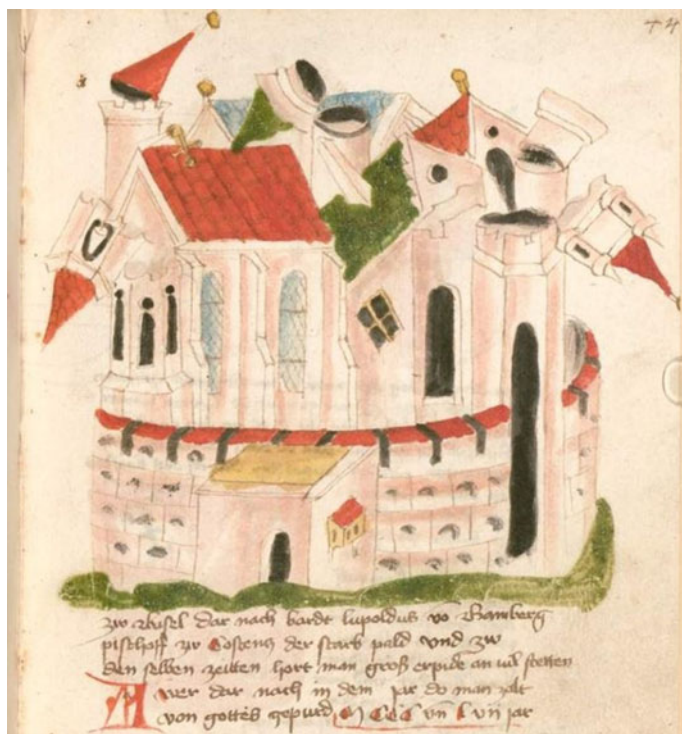 44
zw dar nach wardt lupoldus vō Bamberg
pischoff zv Costenz der starb pald vnd zw
den selben zeitten hort man groß erpide an vil stetten
Aber dar nach in dem jar do man zalt
von gottes gepurd M CCC vn̄ L vii jar